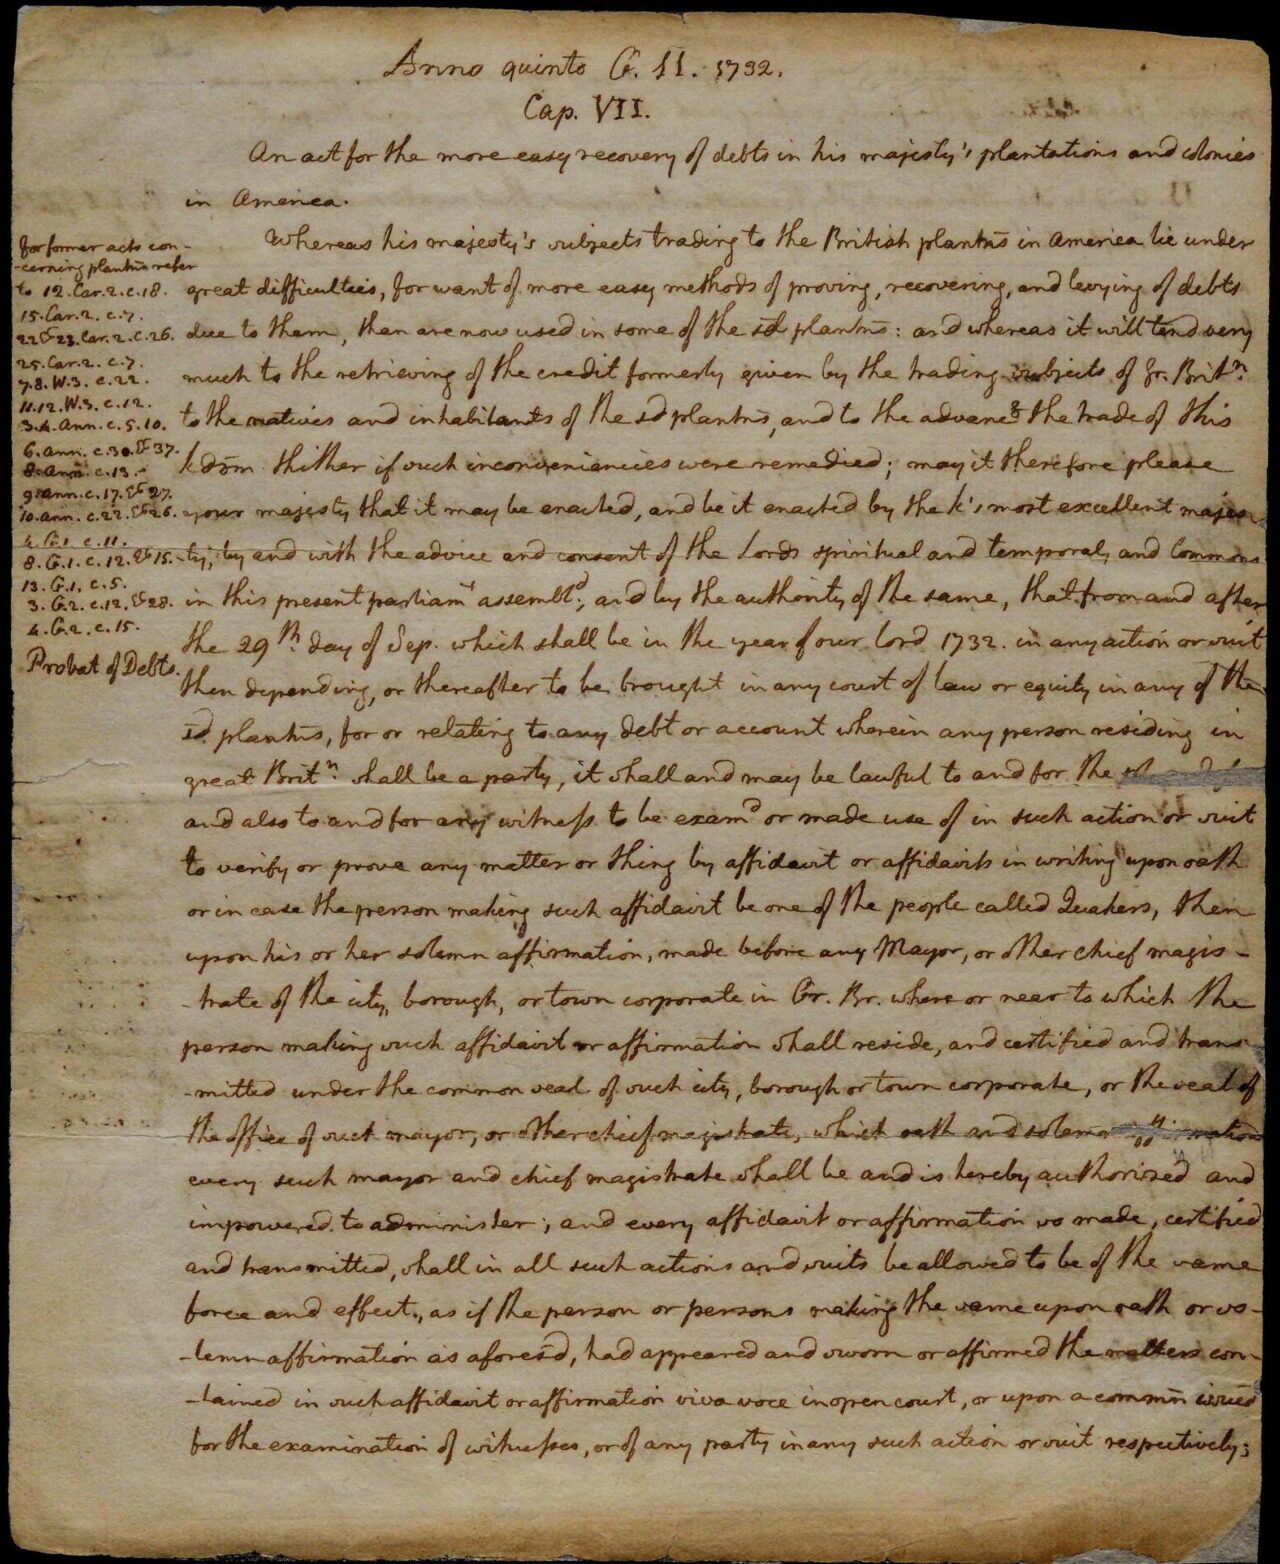 Anno quinto G. II. 1732.
Cap. VII.
An act for the more easy recovery of debts in his majesty's plantations and colonies
in America.
for former acts con-
-cerning plantns refer
to 12. Car. 2. c. 18.
15. Car. 2. c. 7.
22 & 23. Car. 2. c. 26.
25. Car. 2. c. 7.
7. 8. W. 3. c. 22.
11. 12. W. 3. c. 12.
3. 4. Ann. c. 5. 10.
6. Ann. c. 30. & 37.
8. Ann. c. 13.
9. Ann. c. 17. & 27.
10. Ann. c. 22. & 26.
4. G. 1. c. 11.
8. G. 1. c. 12. & 15.
13. G. 1. c. 5.
3. G. 2. c. 12. & 28.
4. G. 2. c. 15.
Probat of Debts.
Whereas his majesty's subjects trading to the British plantns in America lie under
great difficulties, for want of more easy methods of proving, recovering, and levying of debts
due to them, than are now used in some of the sd plantns: and whereas it will tend very
much to the retrieving of the credit formerly given by the trading subjects of Gr. Britn
to the natives and inhabitants of the sd plantns, and to the advance of the trade of this
kdom thither if such inconveniencies were remedied; may it therefore please
your majesty that it may be enacted, and be it enacted by the k's most excellent majes
-ty, by and with the advice and consent of the Lords spiritual and temporal, and Commons
in this present parliamt assembld, and by the authority of the same, that from and after
the 29th day of Sep. which shall be in the year of our lord 1732. in any action or suit
then depending, or thereafter to be brought in any court of law or equity in any of the
sd plantns, for or relating to any debt or account wherein any person residing in
great Britn shall be a party, it shall and may be lawful to and for the
and also to and for any witness to be examd or made use of in such action or suit
to verify or prove any matter or thing by affidavit or affidavits in writing upon oath
or in case the person making such affidavit be one of the people called Quakers, then
upon his or her solemn affirmation, made before any Mayor, or other chief magis-
-trate of the city, borough, or town corporate in Gr. Br. where or near to which the
person making such affidavit or affirmation shall reside, and certified and trans-
-mitted under the common seal of such city, borough or town corporate, or the seal of
the office of such mayor, or other chief magistrate, which oath and solemn affirmation
every such mayor and chief magistrate shall be and is hereby authorised and
impowered to administer; and every affidavit or affirmation so made, certified
and transmitted, shall in all such actions and suits be allowed to be of the same
force and effect, as if the person or persons making the same upon oath or so-
-lemn affirmation as aforesd, had appeared and sworn or affirmed the matters con-
-tained in such affidavit or affirmation viva voce in open court, or upon a commn issued
for the examination of witnesses, or of any party in any such action or suit respectively;